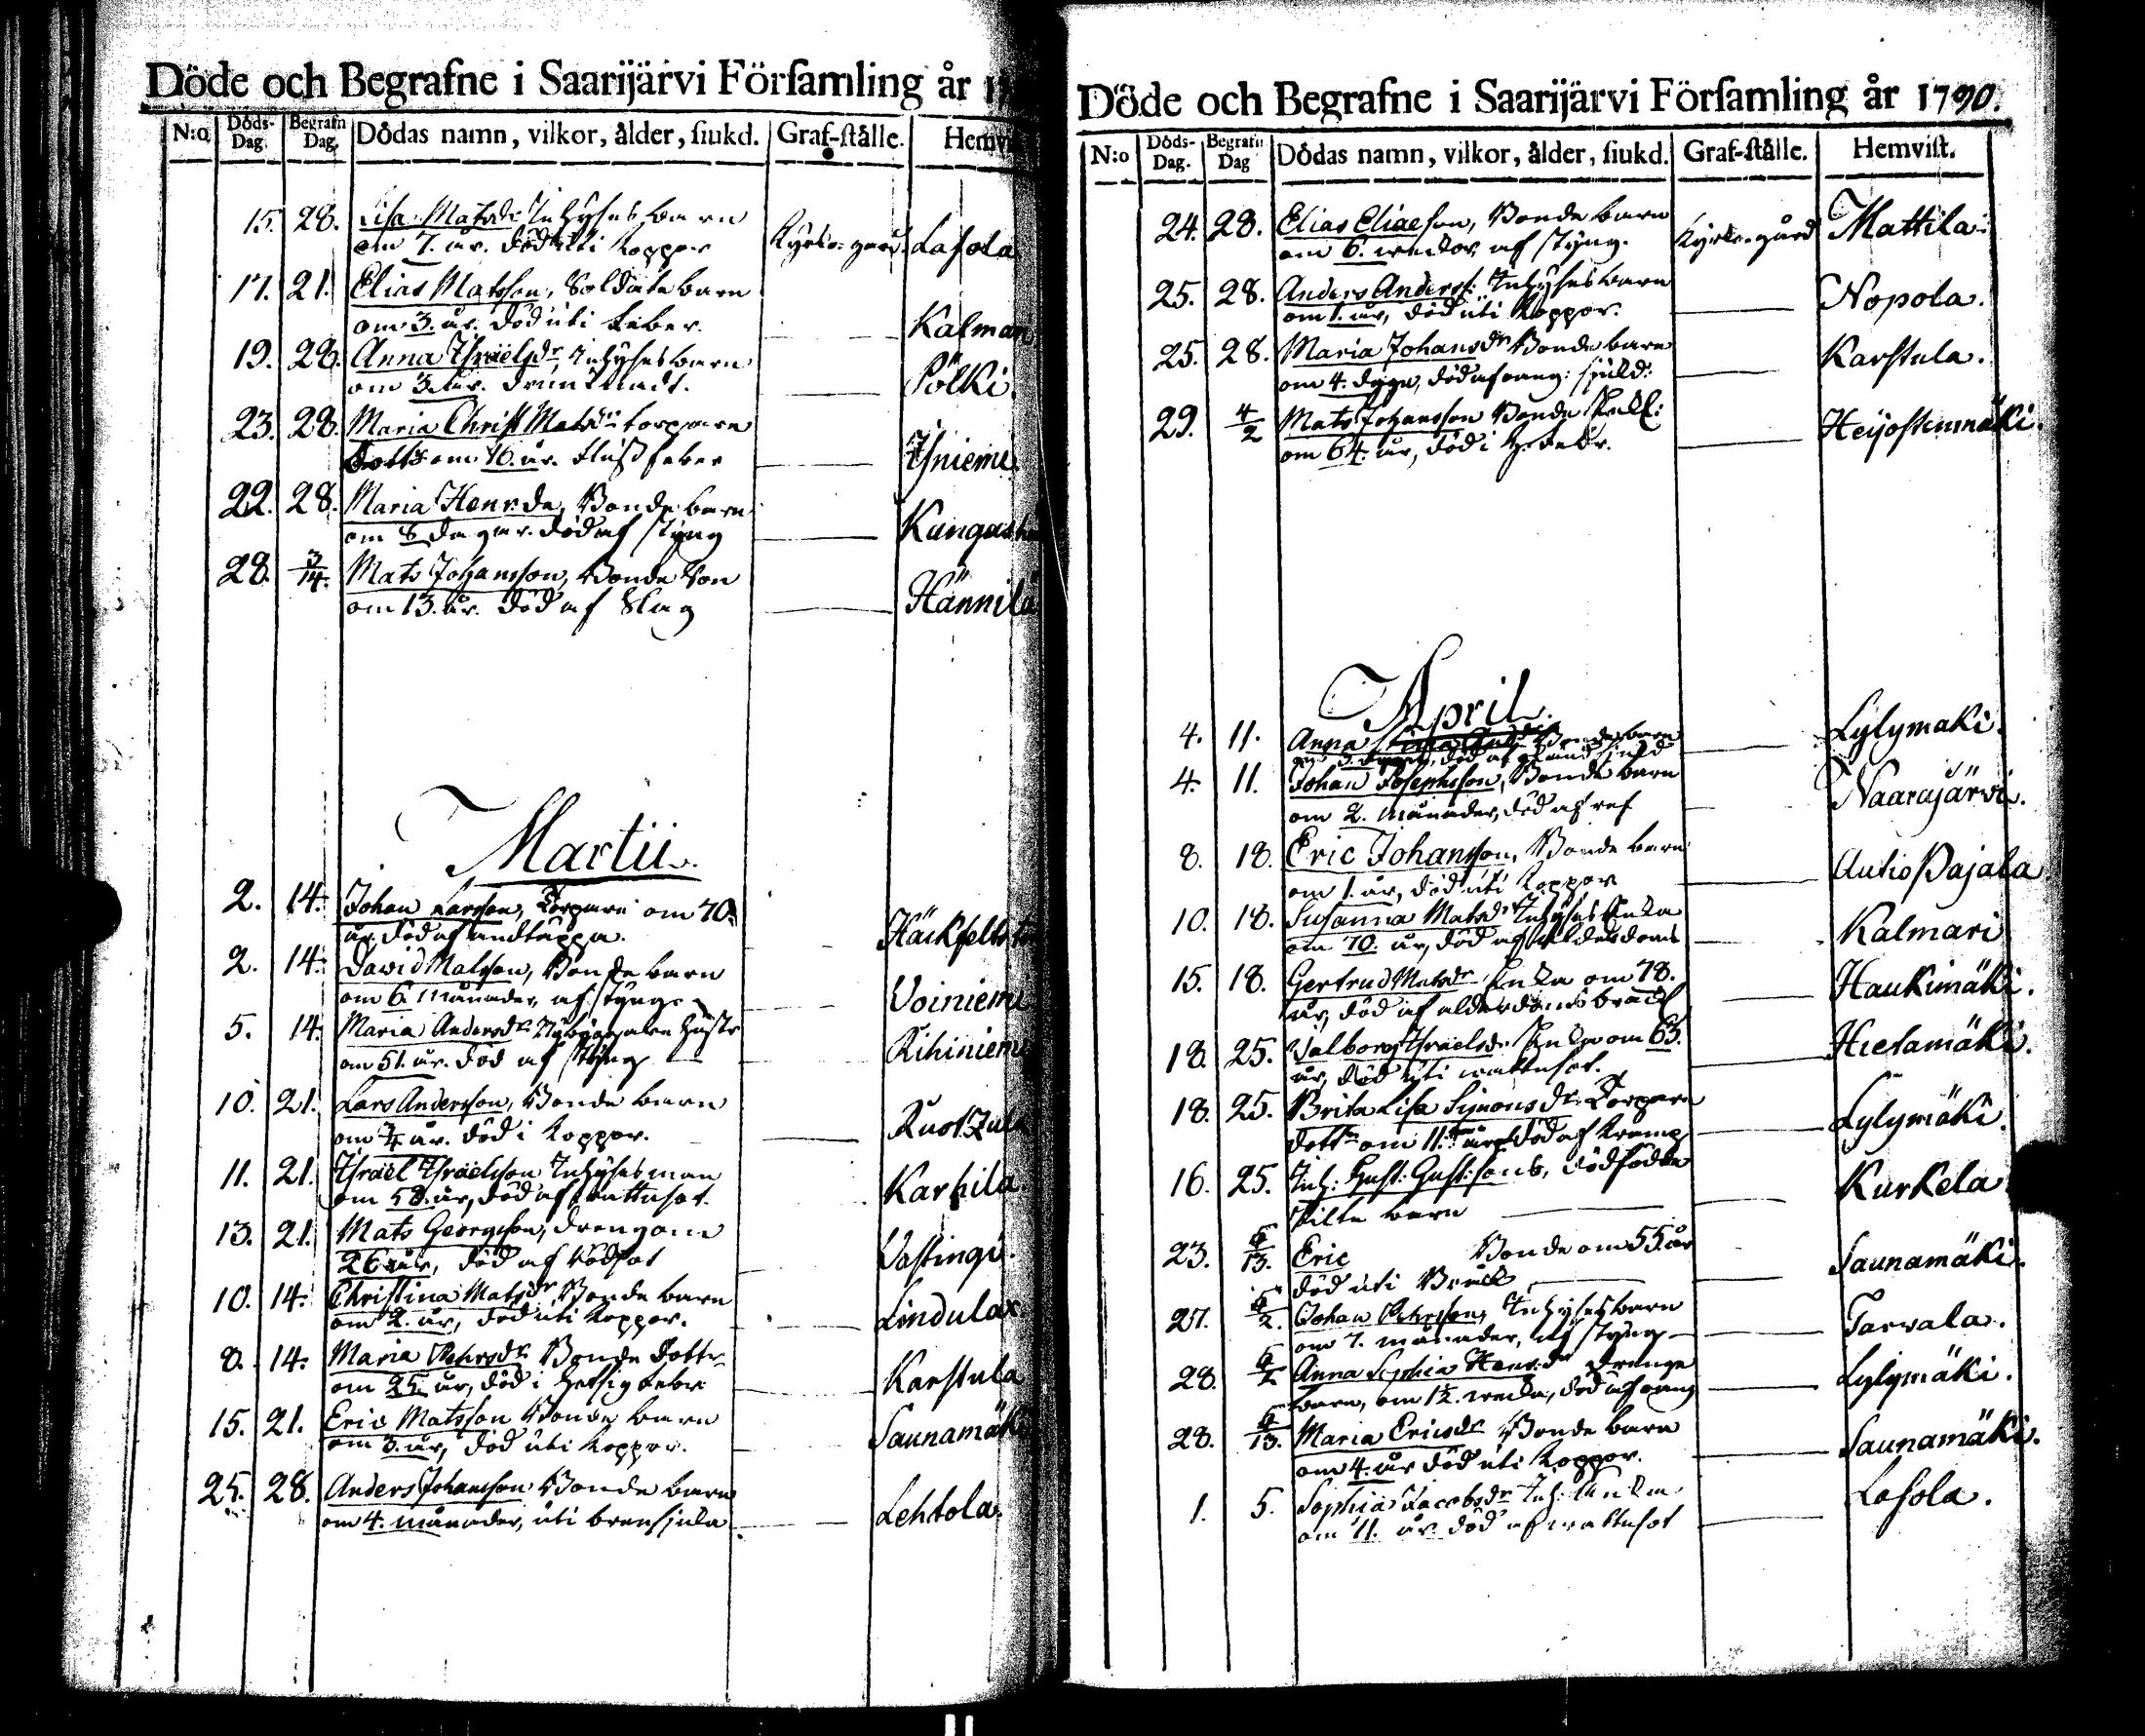 Döde och Begrafne i Saarijärvi Förſamling år 17
N:o Döds-Dag. Begrafn Dag. Dödas namn, vilkor, ålder, ſiukd. Graf-ſtälle. Hemvi
15. 28. Lisa Matsdr Inhyses barn
om 7. år. död uti koppor Kyrko-gård. Lasola
17. 21. Elias Matsson, Soldate barn
om 3. år. död uti feber. Kalmari
19. 28. Anna Israelsdr, Inhyses barn
om 3. år. drunknadt. Pölki
23. 28. Maria Christ Matsdr torpare
Dottr om 10. år. fluß feber
22. 28. Maria Henrsdr, Bonde barn
om 8 dagar. död af styng Kangas
28. 3/14. Mats Johansson, Bonde Son
om 13. år. död af Slag Hännilä
Martii.
2. 14. Johan Larsson, Torpare om 70.
år, död af andtäppa.
2. 14. David Matsson, Bonde barn
om 6. månader, af styng Voiniemi
5. 14. Maria Andersdr Nybyggaren hustr
om 51. år. död af styng Rihiniemi
10. 21. Lars Andersson, Bonde barn
om 3/4 år. död i koppor.
11. 21. Israel Israelsson Inhyses man
om 58. år, död af wattusot. Karhila.
13. 21. Mats Georgsson, dreng om
26 år, död af rödsot Vastingi.
10. 14. Christina Matsdr Bonde barn
om 2. år, död uti koppor. Lindulax
8. 14. Maria Pehrsdr Bonde Dottr
om 25. år, död i hetsig feber Karstula
15. 21. Eric Matsson Bonde barn
om 3. år, död uti koppor. Saunamäki
25. 28. Anders Johansson Bonde barn
om 4. månader, uti bronsjuka Lehtola.
Döde och Begrafne i Saarijärvi Förſamling år 1790.
N:o Döds-Dag. Begrafn Dag Dödas namn, vilkor, ålder, ſiukd. Graf-ſtälle. Hemviſt.
24. 28. Elias Eliaeson, Bonde barn
om 6. weckor, af styng. Kyrko-gård Mattila.
25. 28. Anders Anderss: Inhyses barn
om 1. år, död uti koppor. Nopola.
25. 28. Maria Johansdr Bonde barn
om 4. dygn, död af oang: sjukd: Karstula.
29. 4/2 Mats Johansson Bonde
om 64. år, död i h. febr.
April.
4. 11. Anna Bonde barn
Lylymaki.
4. 11. Johan Josephsson, Bonde barn
om 2. månader, död af ref Naarajärvi.
8. 18. Eric Johansson, Bonde barn
om 1. år, död uti koppor Autio Pajala
10. 18. Susanna Matsdr Inhyses Enka
om 70. år, död af ålderdom Kalmari
15. 18. Gertrud Matsdr Enka om 78.
år, död af ålderdoms bräck Haukimäki.
18. 25. Valborg Israelsdr Enka om 63.
år, död uti wattusot. Hietamäki.
18. 25. Brita Lisa Simonsdr Torpare
dottr om 11. år död af kramp Lylymäki.
16. 25. Inh: Gust: Gust:sons, dödfödde
barn Kurkela
23. 5/13. Eric Bonde om 55 år
död uti Bråck Saunamäki.
27. 5/2. Johan Pehrsson, Inhyses barn
om 7. månader, af styng Tarvala.
28. 5/2 Anna Sophia Henrsdr Drenge
barn, om 1 1/2. wecka, död af oang Lylymäki.
28. 5/13. Maria Ericsdr Bonde barn
om 4. år död uti koppor. Saunamäki.
1. 5. Sophia Jacobsdr Inh: Enka
om 71. år död af wattusot Lasola.